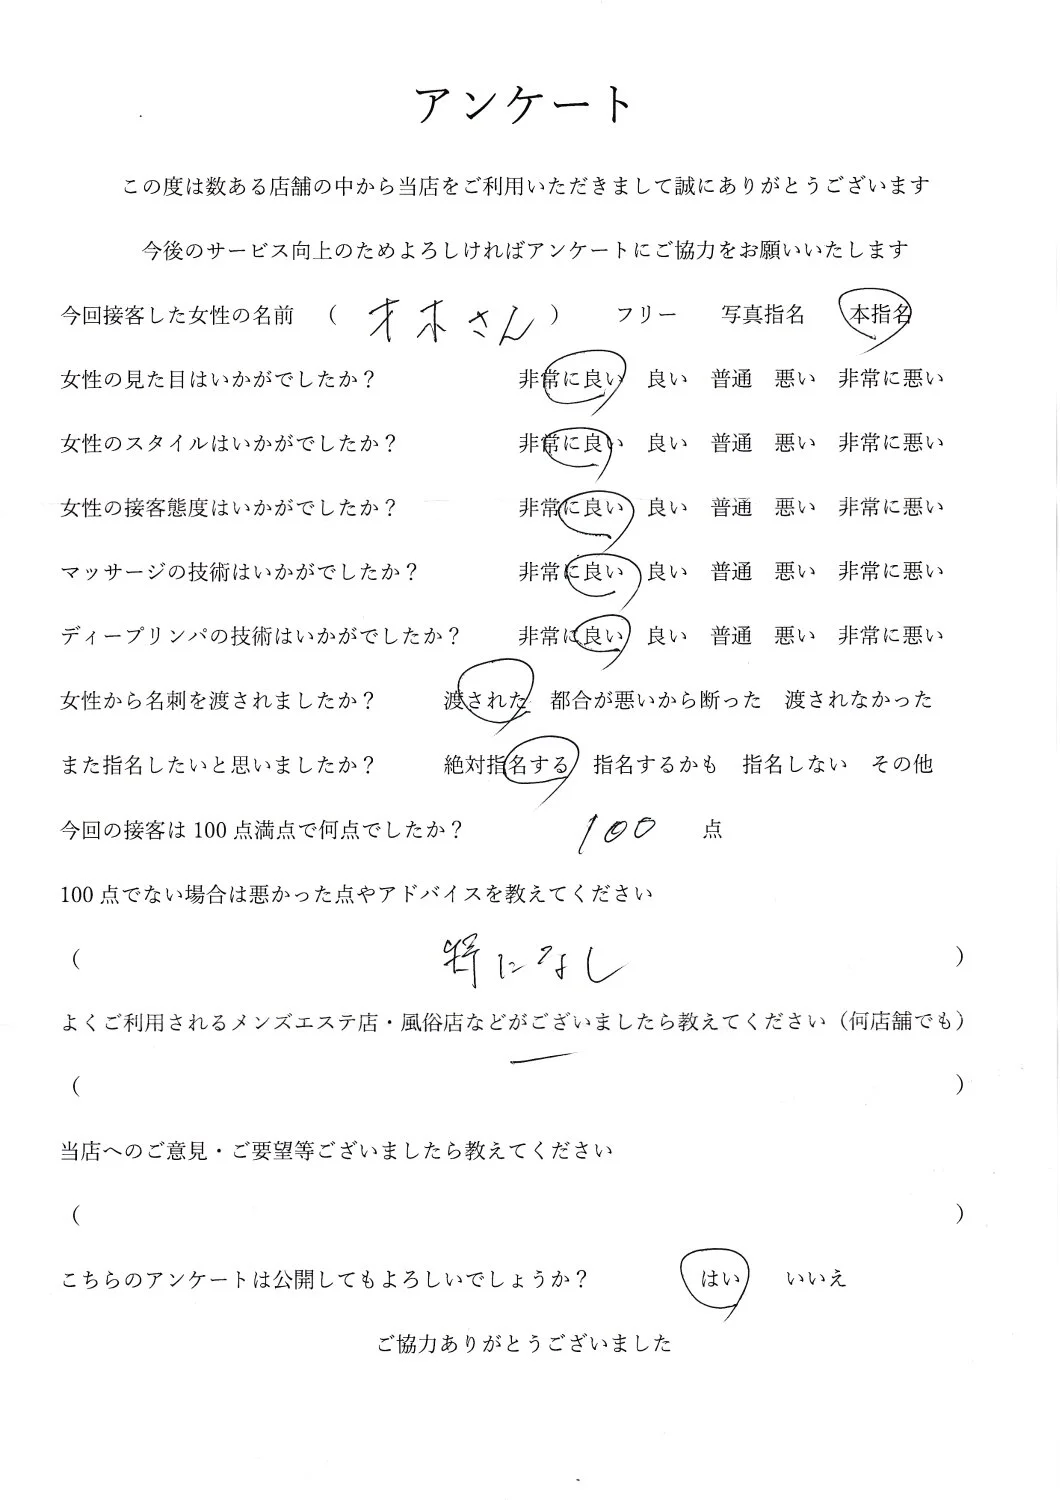 アンケート
この度は数ある店舗の中から当店をご利用いただきまして誠にありがとうございます
今後のサービス向上のためよろしければアンケートにご協力をお願いいたします
今回接客した女性の名前 （ 才木さん ） フリー 写真指名 本指名
女性の見た目はいかがでしたか？ 非常に良い 良い 普通 悪い 非常に悪い
女性のスタイルはいかがでしたか？ 非常に良い 良い 普通 悪い 非常に悪い
女性の接客態度はいかがでしたか？ 非常に良い 良い 普通 悪い 非常に悪い
マッサージの技術はいかがでしたか？ 非常に良い 良い 普通 悪い 非常に悪い
ディープリンパの技術はいかがでしたか？ 非常に良い 良い 普通 悪い 非常に悪い
女性から名刺を渡されましたか？ 渡された 都合が悪いから断った 渡されなかった
また指名したいと思いましたか？ 絶対指名する 指名するかも 指名しない その他
今回の接客は 100 点満点で何点でしたか？ 100 点
100 点でない場合は悪かった点やアドバイスを教えてください
（ 特になし ）
よくご利用されるメンズエステ店・風俗店などがございましたら教えてください（何店舗でも）
（ ー ）
当店へのご意見・ご要望等ございましたら教えてください
（ ）
こちらのアンケートは公開してもよろしいでしょうか？ はい いいえ
ご協力ありがとうございました